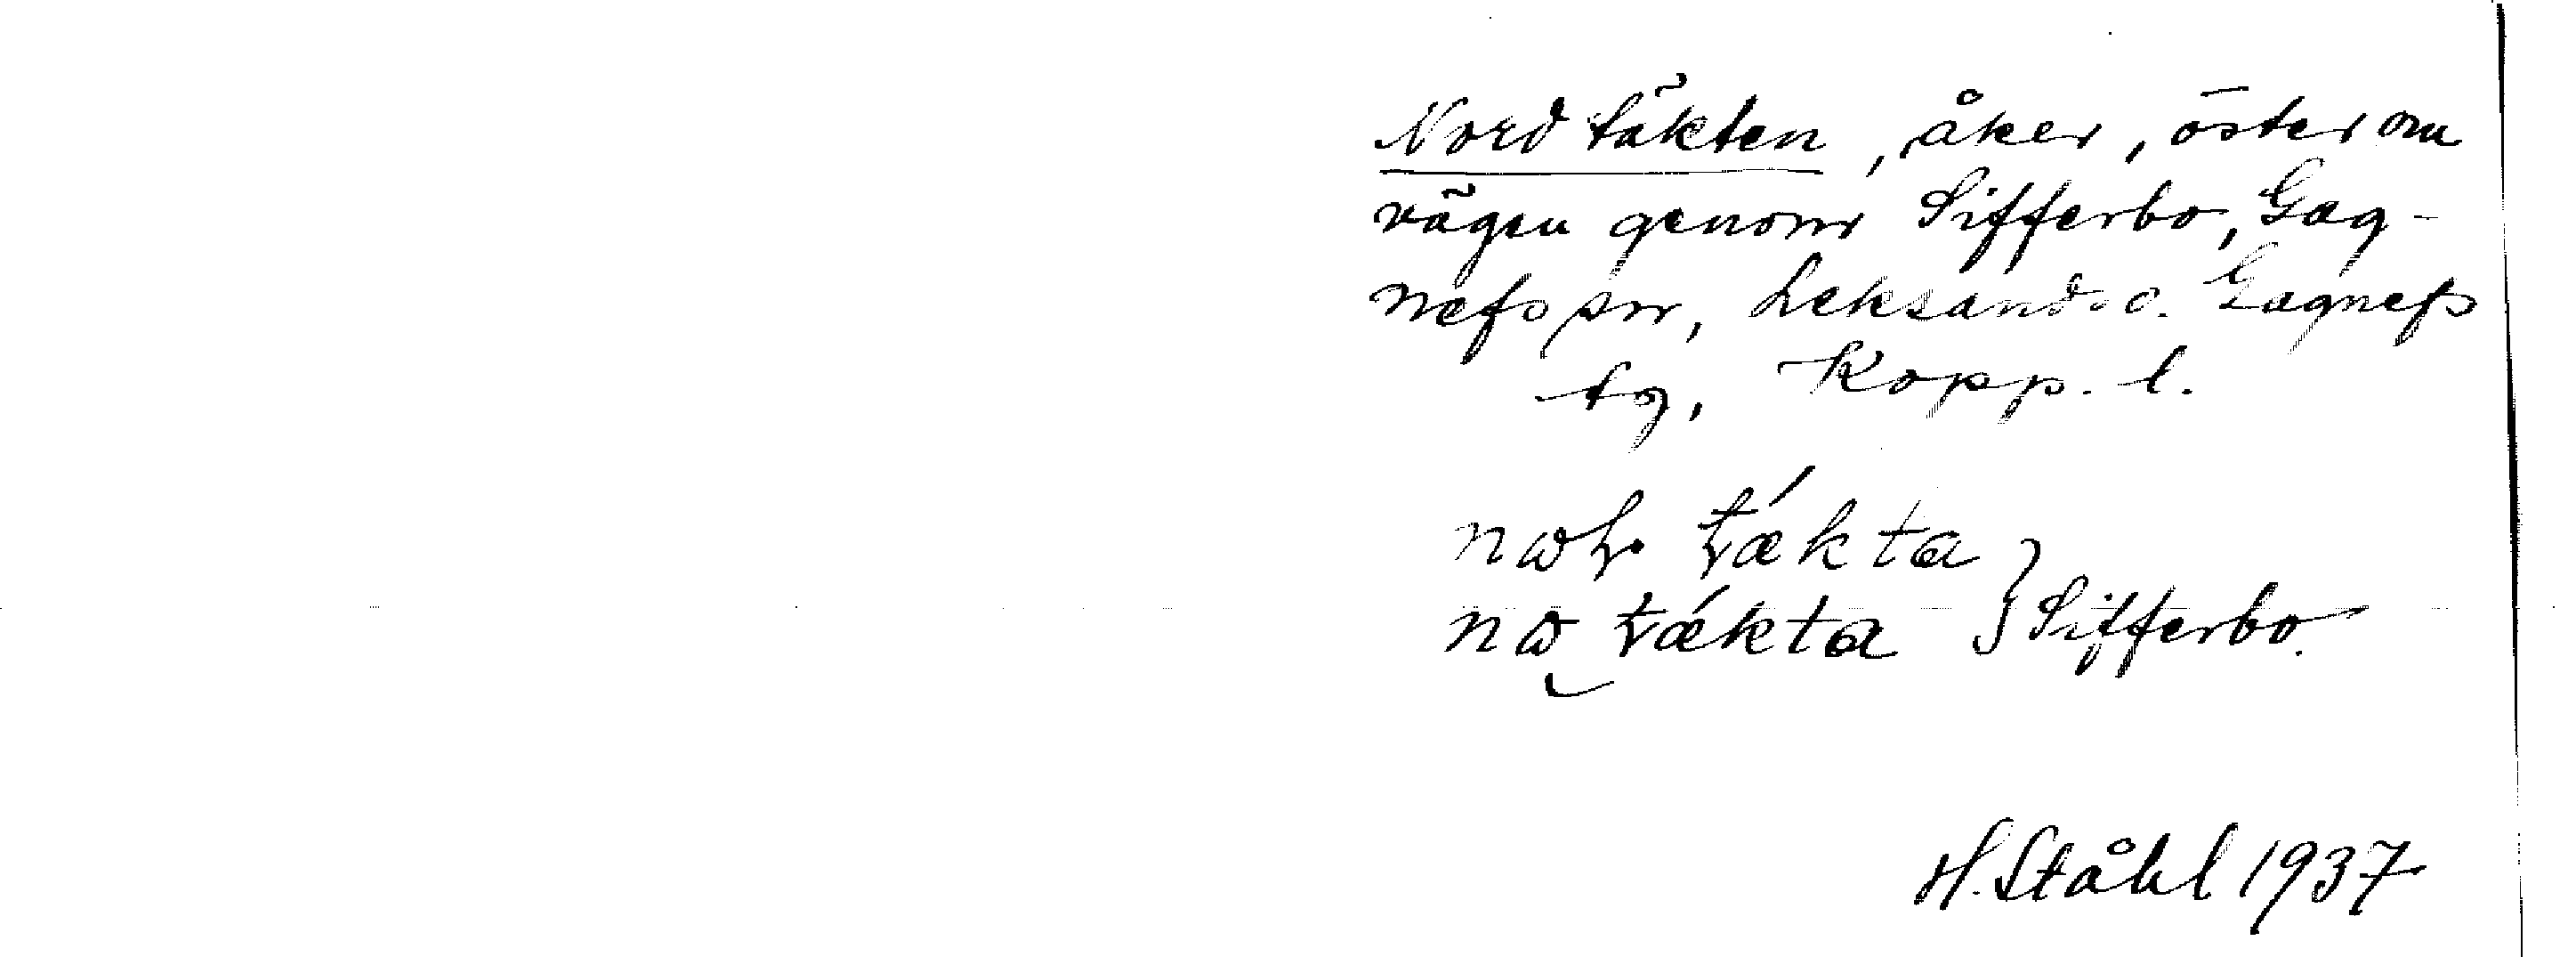 Nordtäkten, åker, öster om
vägen genom Sifferbo, Gag-
nefs sn, Leksands o. Gagnefs
tg, Kopp. l.
täkta
täkta } Sifferbo.
H. Ståhl 1937